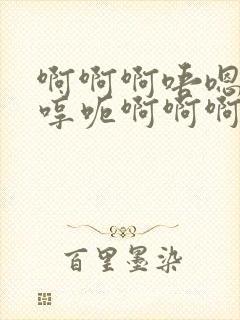 啊啊啊唔嗯
哼呃啊啊啊
百里墨染